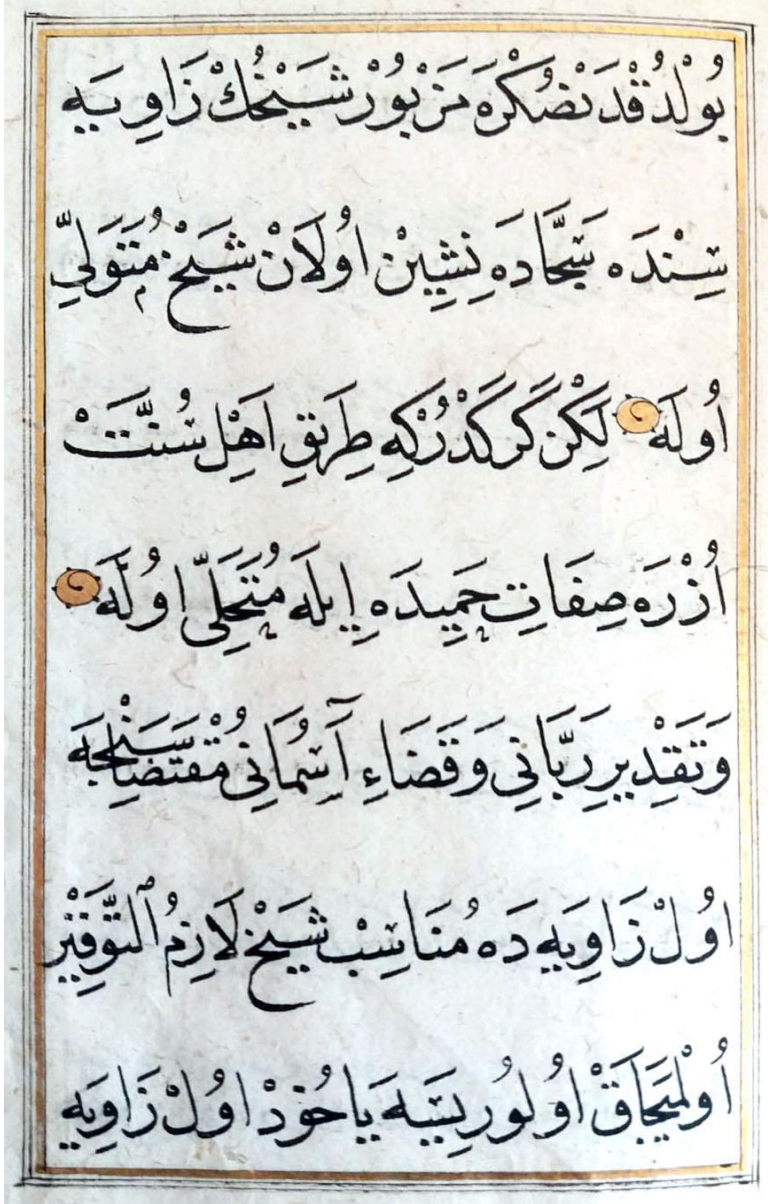 بُولْدُقْدَنْصُكْرَه مَزْبُورْ شَيْخُكْ زَاوِيَه
سِنْدَه سَجَّادَه نِشِينْ اُولَانْ شَيْخْ مُتَوَلِّي
اُولَه لَكِنْ كَرَكْدُرْكِه طَرِيقِ اَهْلِ سُنَّتْ
اُزْرَه صِفَاتِ حَمِيدَه اِيلَه مُتَحَلِّي اُولَه
وَتَقْدِيرِ رَبَّانِي وَقَضَاءِ آسِمَانِي مُقْتَضَاسِنْجَه
اُولْ زَاوِيَه دَه مُنَاسِبْ شَيْخْ لَازِمُ التَّوْقِيْرْ
اُولْمِيَجَاقْ اُولُورِيسَه يَاخُودْ اُولْ زَاوِيَه